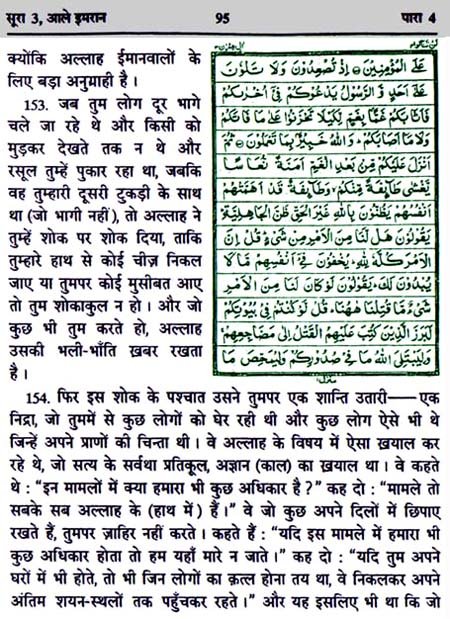 सूरा 3, आले इमरान 95 पारा 4
क्योंकि अल्लाह ईमानवालों के
लिए बड़ा अनुग्रही है ।
153. जब तुम लोग दूर भागे
चले जा रहे थे और किसी को
मुड़कर देखते तक न थे और
रसूल तुम्हें पुकार रहा था, जबकि
वह तुम्हारी दूसरी टुकड़ी के साथ
था (जो भागी नहीं), तो अल्लाह ने
तुम्हें शोक पर शोक दिया, ताकि
तुम्हारे हाथ से कोई चीज़ निकल
जाए या तुमपर कोई मुसीबत आए
तो तुम शोकाकुल न हो । और जो
कुछ भी तुम करते हो, अल्लाह
उसकी भली-भाँति ख़बर रखता
है ।
عَلَى الْمُؤْمِنِيْنَ ۝ اِذْ تُصْعِدُوْنَ وَلَا تَلْوٗنَ
عَلٰٓى اَحَدٍ وَّالرَّسُوْلُ يَدْعُوْكُمْ فِيْٓ اُخْرٰىكُمْ
فَاَثَابَكُمْ غَمًّۢا بِغَمٍّ لِّكَيْلَا تَحْزَنُوْا عَلٰى مَا فَاتَكُمْ
وَلَا مَآ اَصَابَكُمْ وَاللّٰهُ خَبِيْرٌۢ بِمَا تَعْمَلُوْنَ ۝ ثُمَّ
اَنْزَلَ عَلَيْكُمْ مِّنْۢ بَعْدِ الْغَمِّ اَمَنَةً نُّعَاسًا
يَّغْشٰى طَآئِفَةً مِّنْكُمْ وَطَآئِفَةٌ قَدْ اَهَمَّتْهُمْ
اَنْفُسُهُمْ يَظُنُّوْنَ بِاللّٰهِ غَيْرَ الْحَقِّ ظَنَّ الْجَاهِلِيَّةِ
يَقُوْلُوْنَ هَلْ لَّنَا مِنَ الْاَمْرِ مِنْ شَيْءٍ قُلْ اِنَّ
الْاَمْرَ كُلَّهٗ لِلّٰهِ يُخْفُوْنَ فِيْٓ اَنْفُسِهِمْ مَّا لَا
يُبْدُوْنَ لَكَ يَقُوْلُوْنَ لَوْ كَانَ لَنَا مِنَ الْاَمْرِ
شَيْءٌ مَّا قُتِلْنَا هٰهُنَا قُلْ لَّوْ كُنْتُمْ فِيْ بُيُوْتِكُمْ
لَبَرَزَ الَّذِيْنَ كُتِبَ عَلَيْهِمُ الْقَتْلُ اِلٰى مَضَاجِعِهِمْ
وَلِيَبْتَلِيَ اللّٰهُ مَا فِيْ صُدُوْرِكُمْ وَلِيُمَحِّصَ مَا
154. फिर इस शोक के पश्चात उसने तुमपर एक शान्ति उतारी—एक
निद्रा, जो तुममें से कुछ लोगों को घेर रही थी और कुछ लोग ऐसे भी थे
जिन्हें अपने प्राणों की चिन्ता थी । वे अल्लाह के विषय में ऐसा ख़याल कर
रहे थे, जो सत्य के सर्वथा प्रतिकूल, अज्ञान (काल) का ख़याल था । वे कहते
थे : “इन मामलों में क्या हमारा भी कुछ अधिकार है ?” कह दो : “मामले तो
सबके सब अल्लाह के (हाथ में) हैं ।” वे जो कुछ अपने दिलों में छिपाए
रखते हैं, तुमपर ज़ाहिर नहीं करते । कहते हैं : “यदि इस मामले में हमारा भी
कुछ अधिकार होता तो हम यहाँ मारे न जाते ।” कह दो : “यदि तुम अपने
घरों में भी होते, तो भी जिन लोगों का क़त्ल होना तय था, वे निकलकर अपने
अंतिम शयन-स्थलों तक पहुँचकर रहते ।” और यह इसलिए भी था कि जो